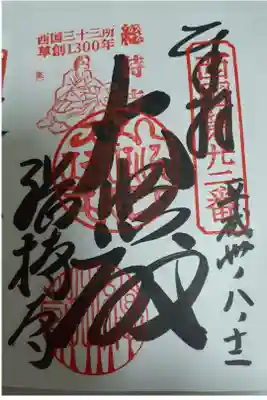 奉拝
西国第廿二番
平成卅、八、十二
総持寺
西国三十三所
草創1300年
大悲殿
総持寺